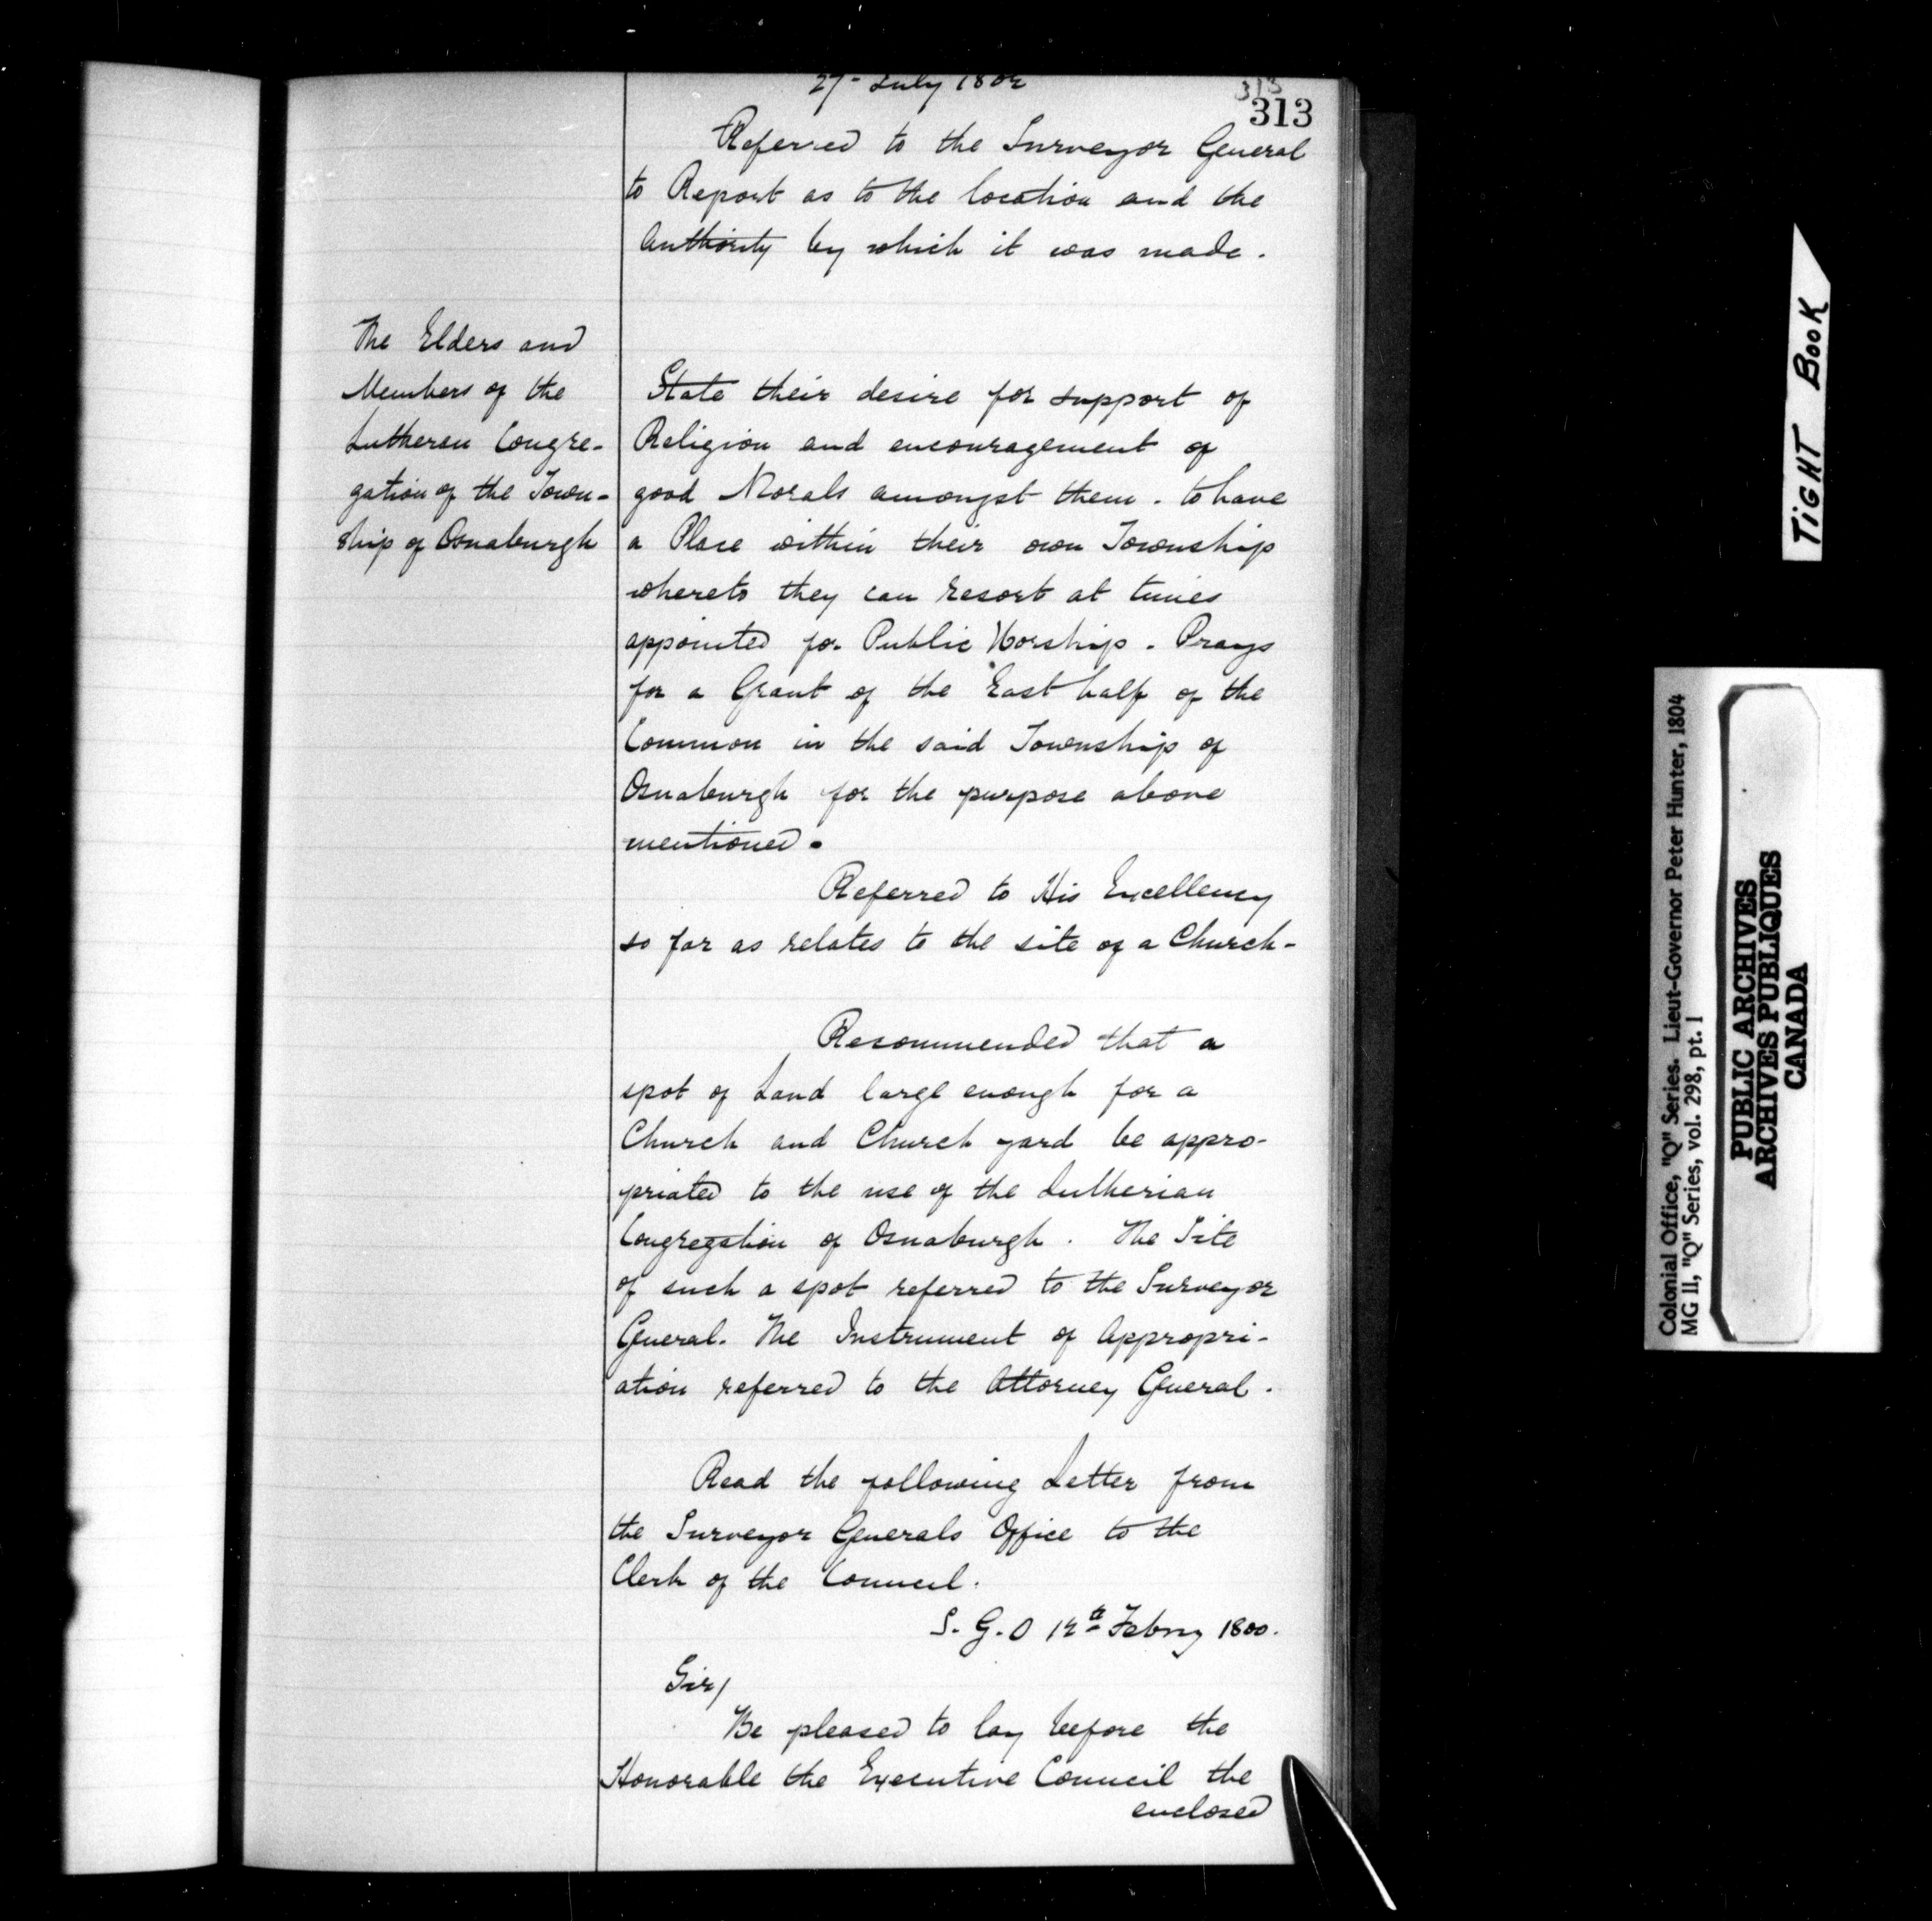 27- July 1802
313
313
Referred to the Surveyor General
to Report as to the location and the
Authority by which it was made.
The Elders and
Members of the
Lutheran Congre-
gation of the Town-
ship of Osnaburgh
State their desire for support of
Religion and encouragement of
good Morals amongst them. to have
a Place within their own Township
whereto they can resort at times
appointed for Public Worship. Prays
for a Grant of the East half of the
Common in the said Township of
Osnaburgh for the purpose above
mentioned.
Referred to His Excellency
so far as relates to the site of a Church-
Recommended that a
spot of Land large enough for a
Church and Church yard be appro-
priated to the use of the Lutherian
Congregation of Osnaburgh. The Site
of such a spot referred to the Surveyor
General. The Instrument of Appropri-
ation referred to the Attorney General.
Read the following Letter from
the Surveyor Generals Office to the
Clerk of the Council.
S. G. O 12th Febry 1800.
Sir/
Be pleased to lay before the
Honorable the Executive Council the
enclosed
TIGHT BOOK
Colonial Office, "Q" Series. Lieut-Governor Peter Hunter, 1804
MG 11, "Q" Series, vol. 298, pt. 1
PUBLIC ARCHIVES
ARCHIVES PUBLIQUES
CANADA